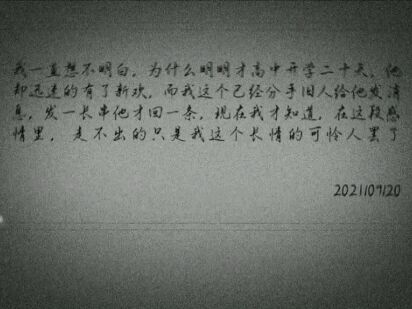 我一直想不明白，为什么明明才高中开学二十天，他
却迅速的有了新欢，而我这个已经分手旧人给他发消
息，发一长串他才回一条，现在我才知道，在这段感
情里，走不出的只是我这个长情的可怜人罢了
2021109120